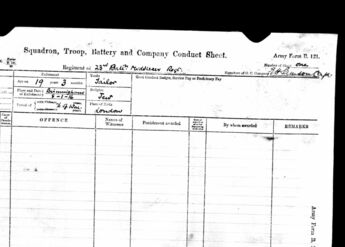 Squadron, Troop, Battery and Company Conduct Sheet.
Army Form B. 121.
Regiment of 23rd Battn Middlesex Regt.
Number of Sheet one
Signature of O.C. Company
Enlistment
Trade
Good Conduct Badges, Service Pay or Proficiency Pay
Age on 19 years 3 months
Tailor
Place and Date of Enlistment
Religion
Jew
Period of
Place of Birth
London
OFFENCE
Names of Witnesses
Punishment awarded
By whom awarded
REMARKS
Army Form B.